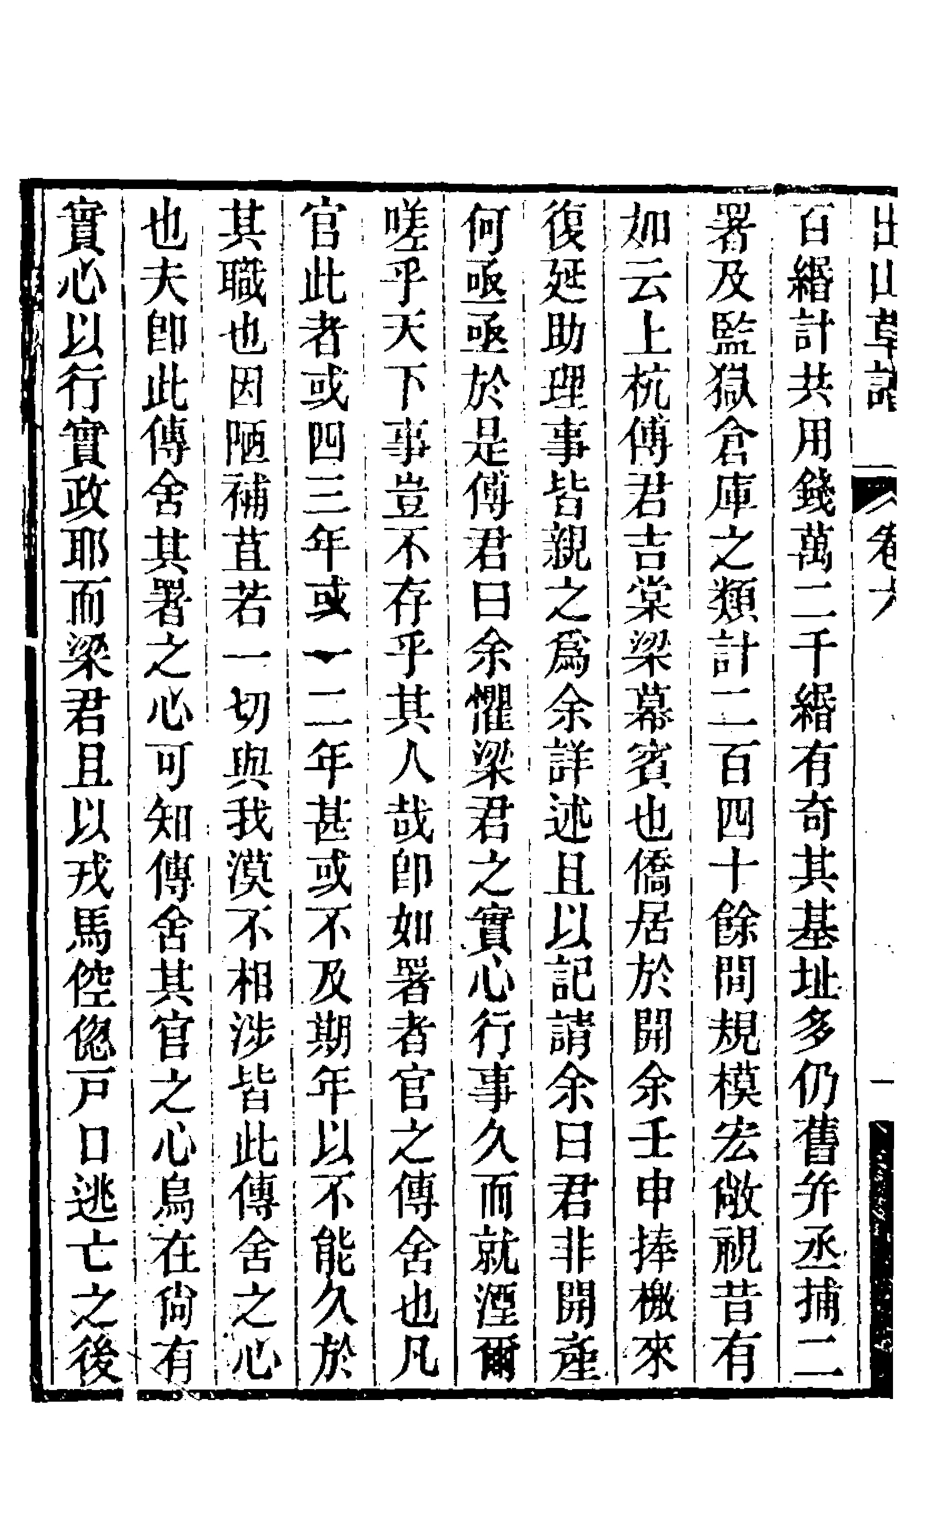 出山草譜 卷六 一
百緡計共用錢萬二千緡有奇其基址多仍舊并丞捕二
署及監獄倉庫之類計二百四十餘間規模宏敞視昔有
如云上杭傅君吉棠梁幕賓也僑居於開余壬申捧檄來
復延助理事皆親之爲余詳述且以記請余曰君非開產
何亟亟於是傅君曰余懼梁君之實心行事久而就湮爾
嗟乎天下事豈不存乎其人哉卽如署者官之傳舍也凡
官此者或四三年或一二年甚或不及期年以不能久於
其職也因陋補苴若一切與我漠不相涉皆此傳舍之心
也夫卽此傳舍其署之心可知傳舍其官之心烏在尙有
實心以行實政耶而梁君且以戎馬倥傯戸口逃亡之後